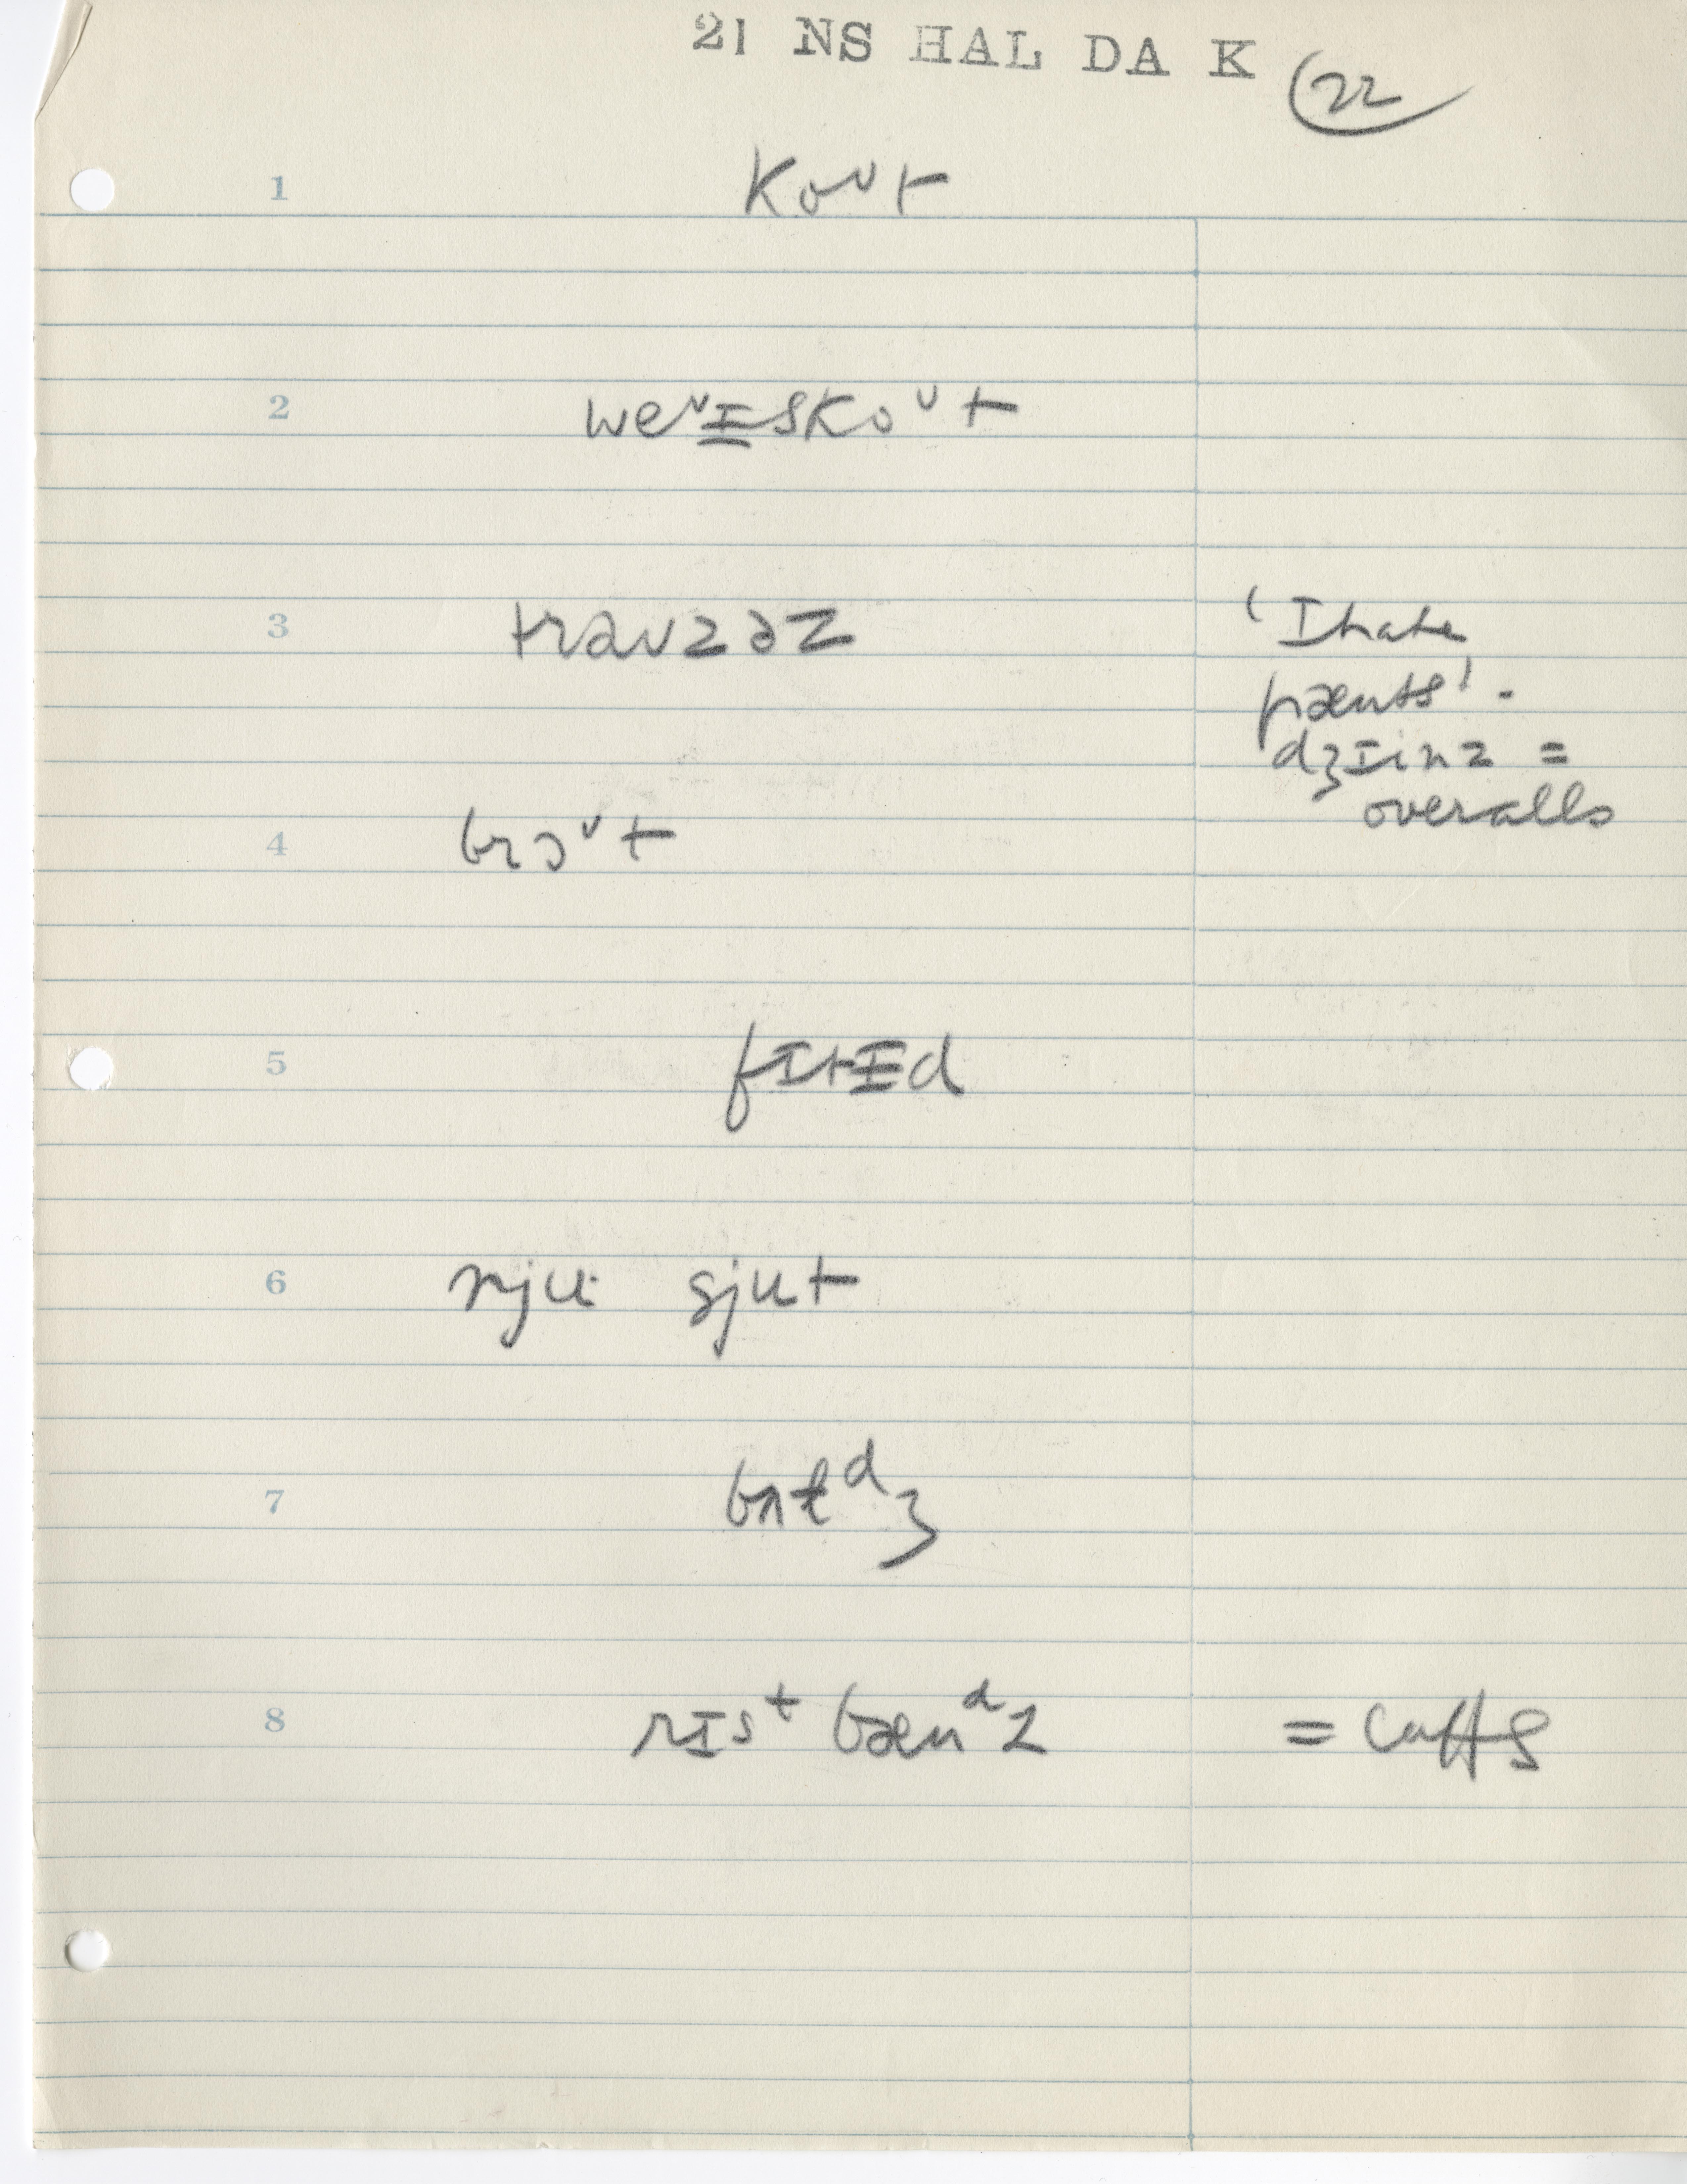 21 NS HAL DA K 22
1 koʊt
2 weᵛɪskoᵘt
3 traʊzəz
'I hate
pænts'.
dʒɪinz =
overalls
4 brɔᵘt
5 fɪtɪd
6 nju· sjut
7
8 rɪsᵗ bænᵈz = cuffs